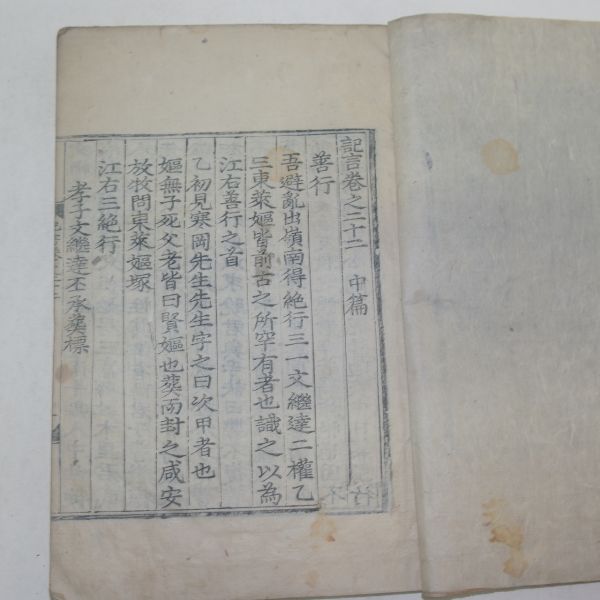 記言卷之二十二 中篇
善行
吾避亂出嶺南得絶行三一文繼達二權乙
三東萊嫗皆前古之所罕有者也識之以為
江右善行之首
乙初見寒岡先生先生字之曰次甲者也
嫗無子死父老皆曰賢嫗也葬而封之咸安
放牧問東萊嫗塚
江右三絶行
孝子文繼達丕承奠標